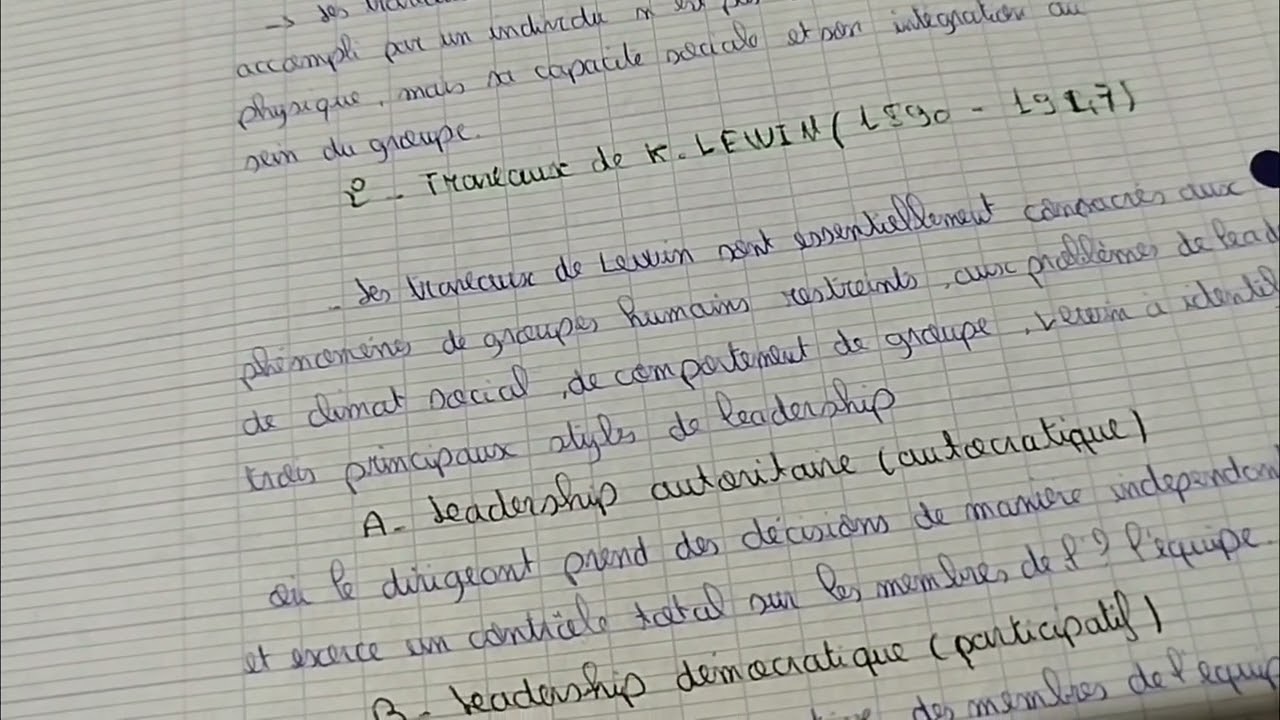 → Les
accompli par un individu n'est pas
physique, mais sa capacité sociale et son intégration au
sein du groupe.
2 - Travaux de K. LEWIN (1890 - 1947)
- Les travaux de Lewin sont essentiellement consacrés aux
phénomènes de groupes humains restreints, aux problèmes de lead
de climat social, de comportement de groupe, Lewin à identif
trois principaux styles de leadership
A - Leadership autoritaire (autocratique)
où le dirigeant prend des décisions de manière independant
et exerce un contrôle total sur les membres de l'? l'équipe.
B - Leadership démocratique (participatif)
des membres de l'équip